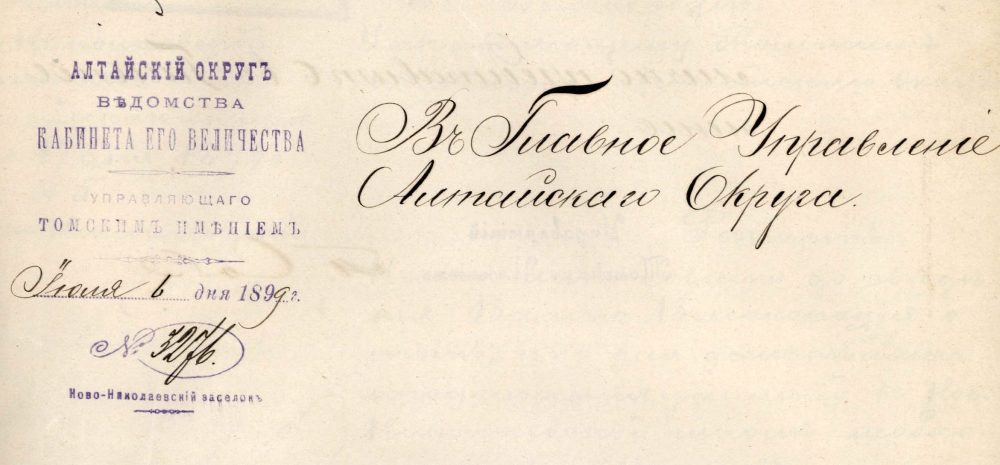 АЛТАЙСКІЙ ОКРУГЪ
ВѢДОМСТВА
КАБИНЕТА ЕГО ВЕЛИЧЕСТВА
УПРАВЛЯЮЩАГО
ТОМСКИМЪ ИМѢНІЕМЪ
Іюля 6 дня 1899 г.
№ 3276.
Ново-Николаевскій заселокъ
Въ Главное Управленіе
Алтайскаго Округа.